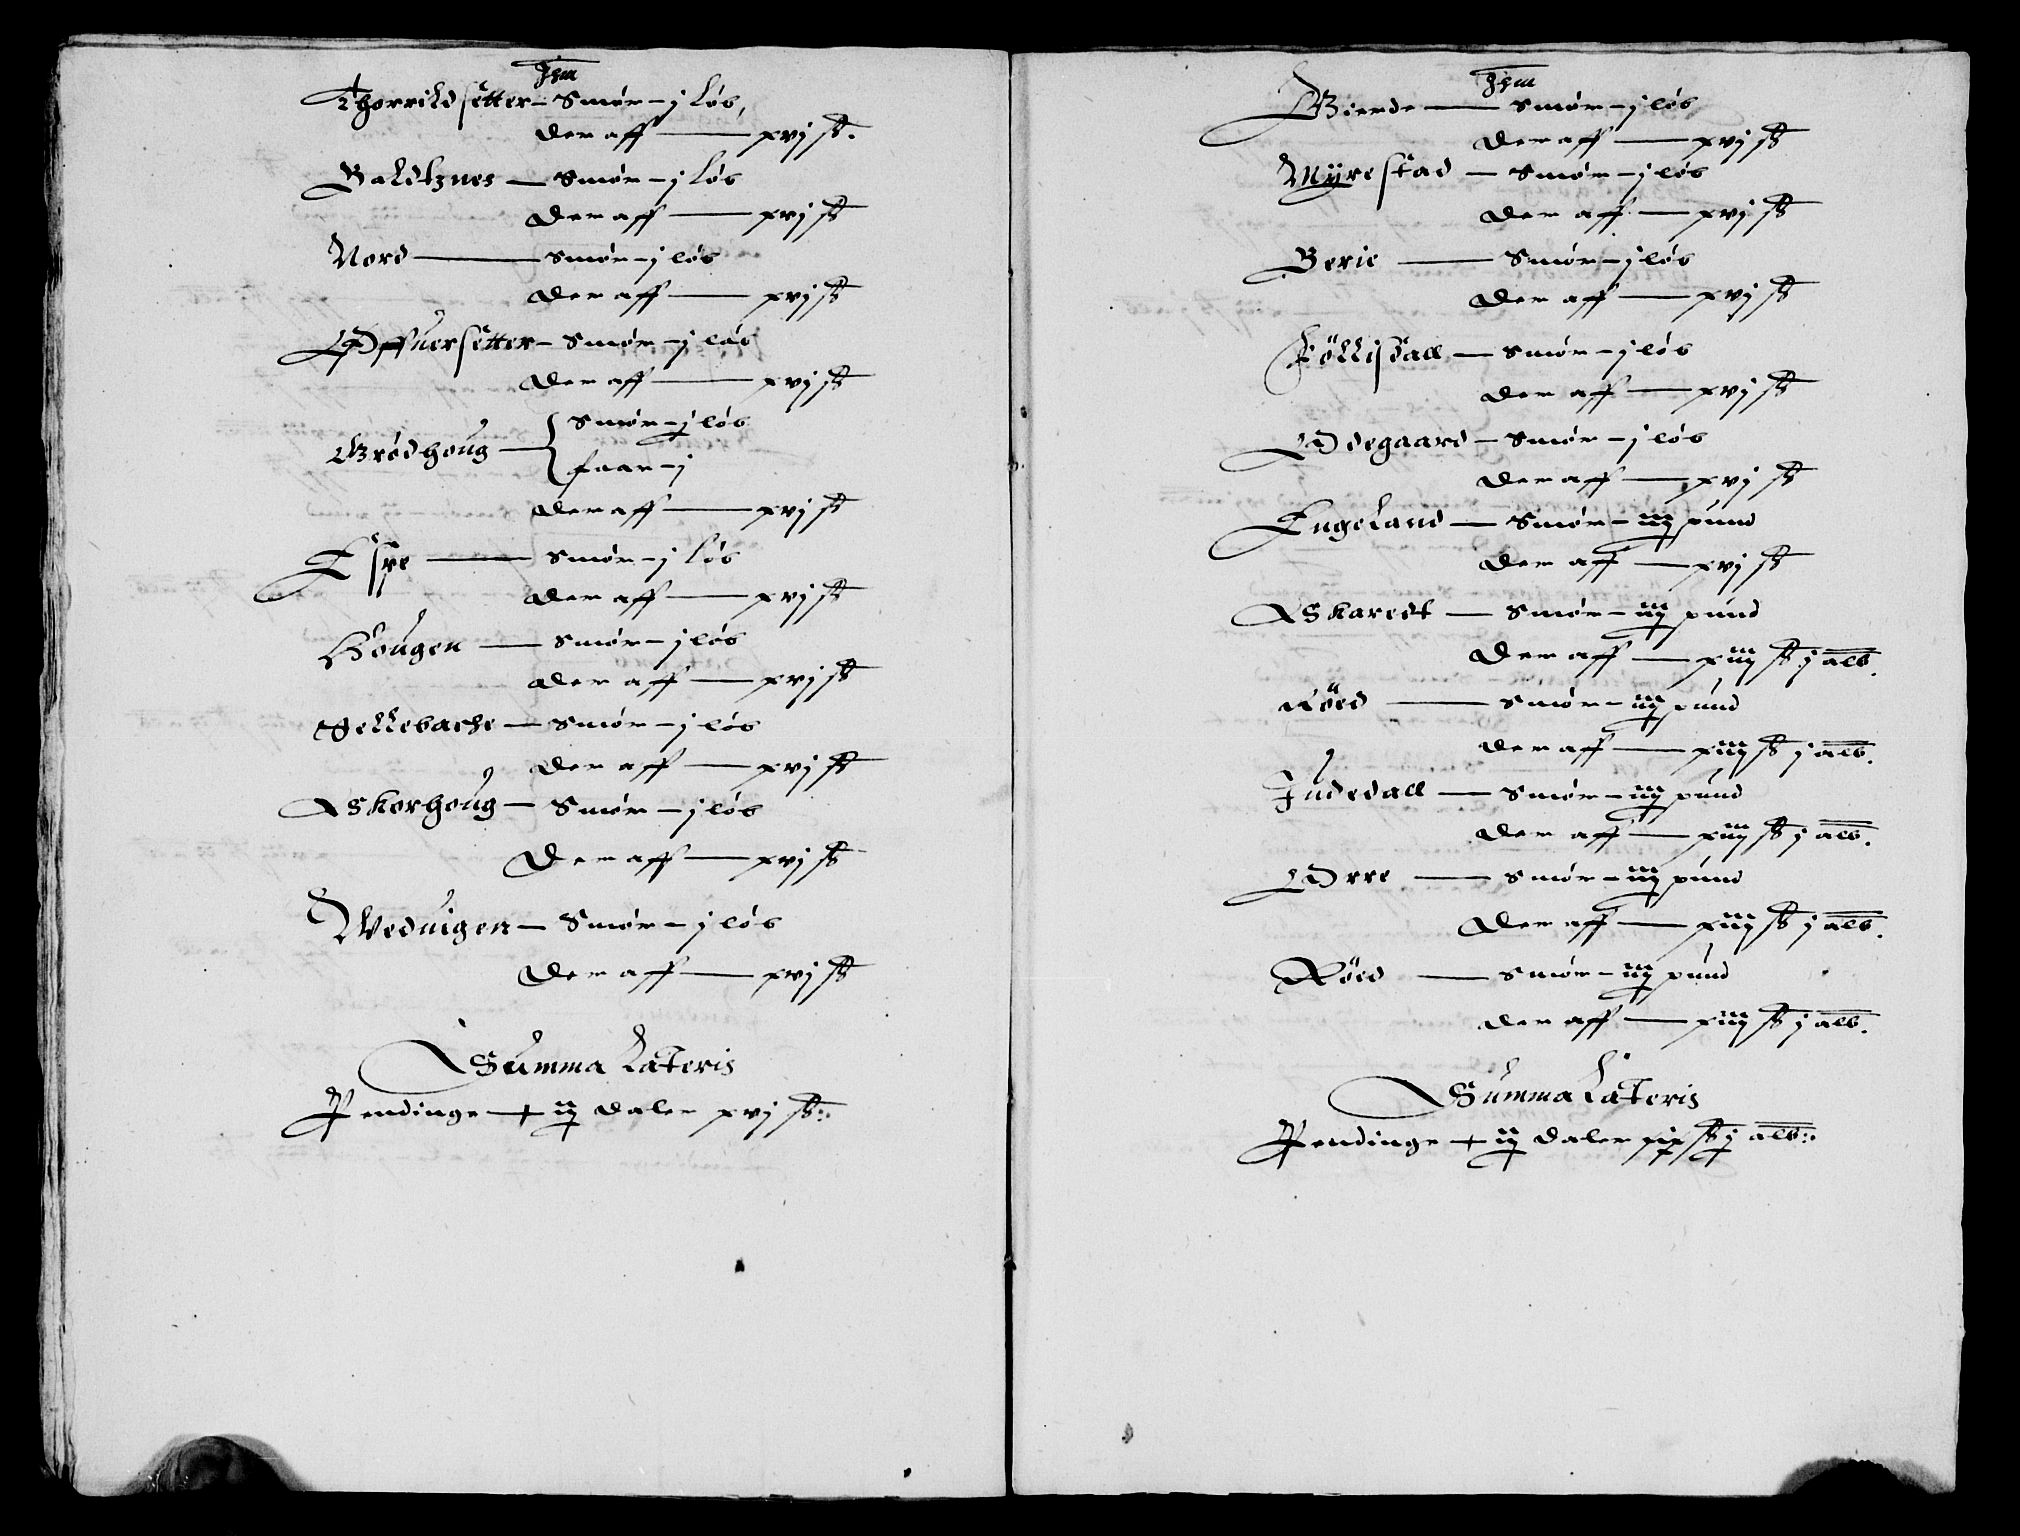 Jtem
Thorrildsetter – Smør – j løb,
der aff — xvj sk.
Baldtznes — Smør – j løb
der aff — xvj sk
Nord — smør – j løb
der aff — xvj sk
Offuersetter – Smør – j løb
der aff — xvj sk
Brødhoug — Smør – j løb
faar – j
der aff — xvj sk
Espe — smør – j løb
der aff — xvj sk
Hougen — smør – j løb
der aff — xvj sk
Gellebache — Smør – j løb
der aff — xvj sk
Askorhoug — Smør – j løb
Der aff — xvj sk
Weduigen — Smør – j løb
Der aff — xvj sk
Summa Lateris
Pendinge — ij daler xvj sk:
Jtem
Gierde — smør – j løb
der aff — xvj sk
Myrestad — Smør – j løb
der aff — xvj sk
Berie — Smør – j løb
der aff — xvj sk
Føllisdall — Smør – j løb
der aff — xvj sk
Ødegaard — Smør – j løb
der aff — xvj sk
Engeland — Smør – ij pund
der aff — xvj sk
Askaredt — Smør – ij pund
der aff — xiij sk j alb.
Røed — Smør – ij pund
der aff — xiij sk j alb.
Judedall — Smør – ij pund
der aff — xiij sk j alb.
Ørre — Smør – ij pund
der aff — xiij sk j alb.
Røed — Smør – ij pund
der aff — xiij sk j alb.
Summa Lateris
Pendinge — ij daler xix sk j alb: